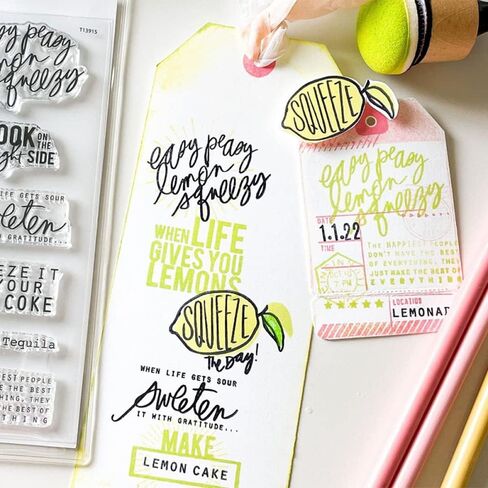 T13915
easy peasy
lemon
squeezy
OOK ON THE
SIDE
LIFE GETS SOUR
Sweeten
WITH GRATITUDE...
EZE IT
YOUR
CAKE
Tequila
PEOPLE
THE BEST
THING, THEY
THE BEST OF
THING
easy peasy
lemon
squeezy
WHEN LIFE
GIVES YOU
LEMONS
SQUEEZE
The Day!
WHEN LIFE GETS SOUR
Sweeten
IT WITH GRATITUDE...
MAKE
LEMON CAKE
SQUEEZE
easy peasy
lemon
squeezy
DATE
1.1.22
TIME
THE HAPPIEST PEOPLE
DON'T HAVE THE BEST
OF EVERYTHING, THEY
JUST MAKE THE BEST OF
EVERYTHING
LOCATION
LEMONAD